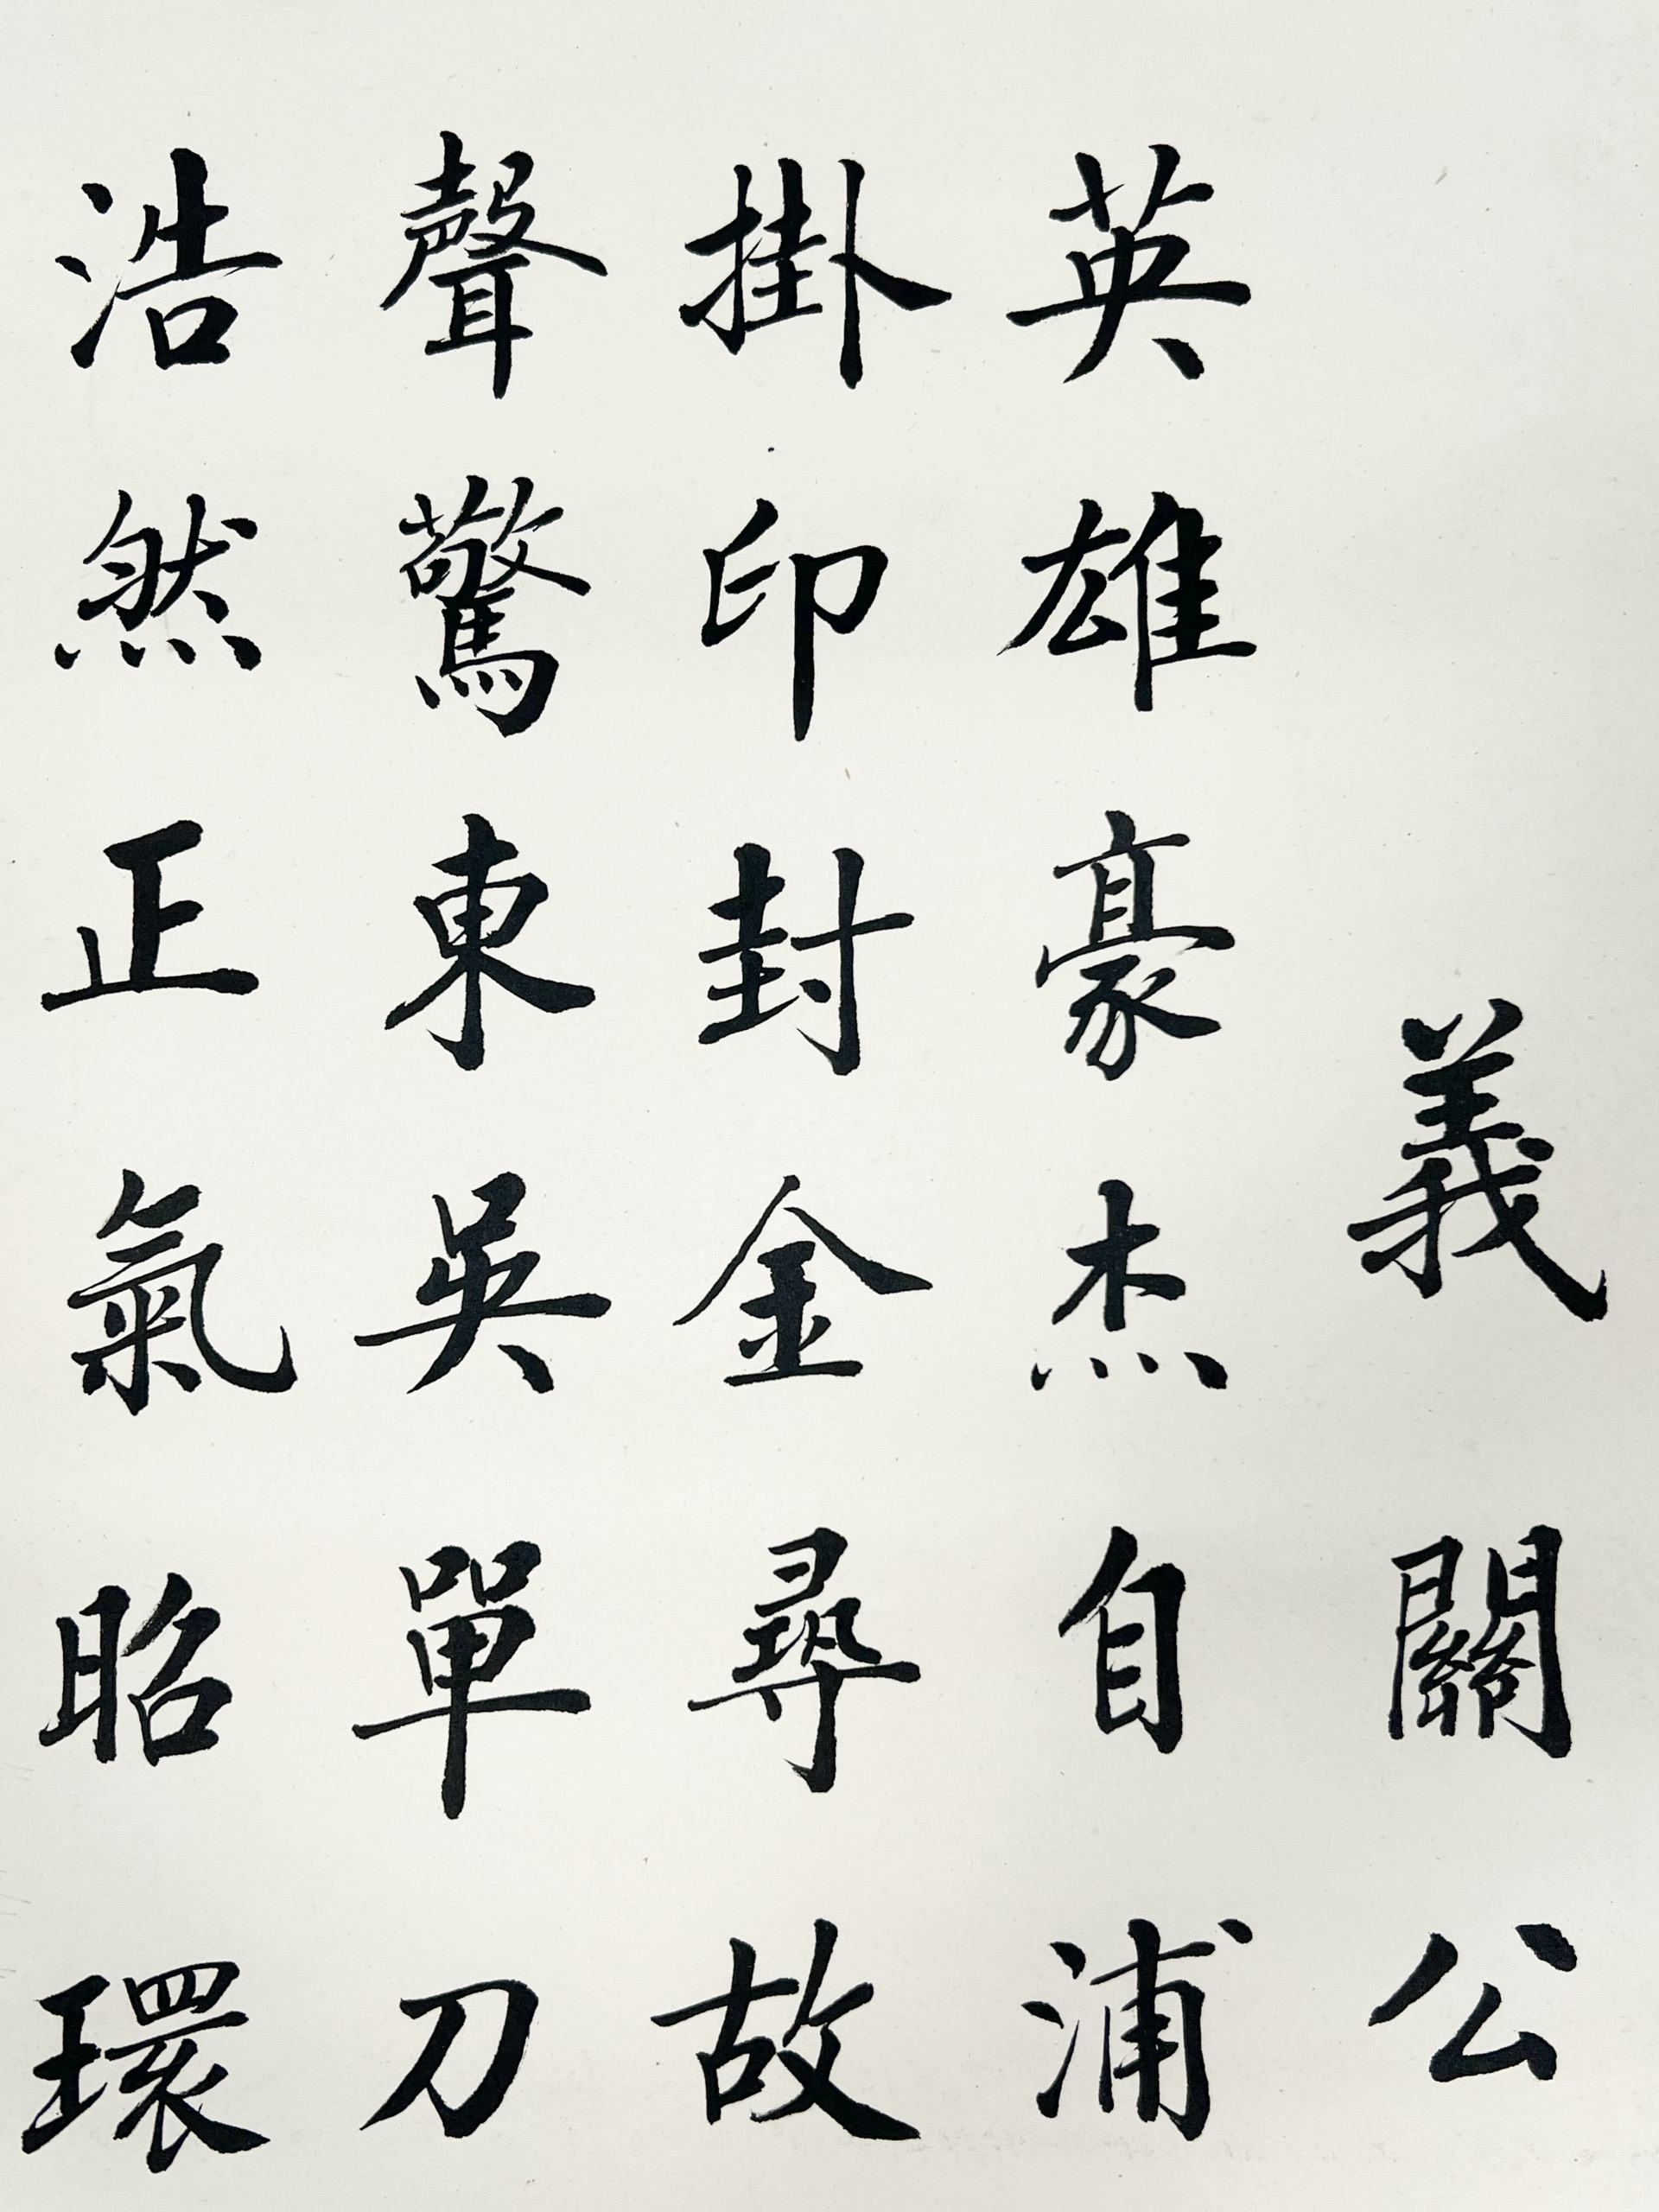 義關公
英雄豪杰自浦
掛印封金尋故
聲驚東吳單刀
浩然正氣昭環